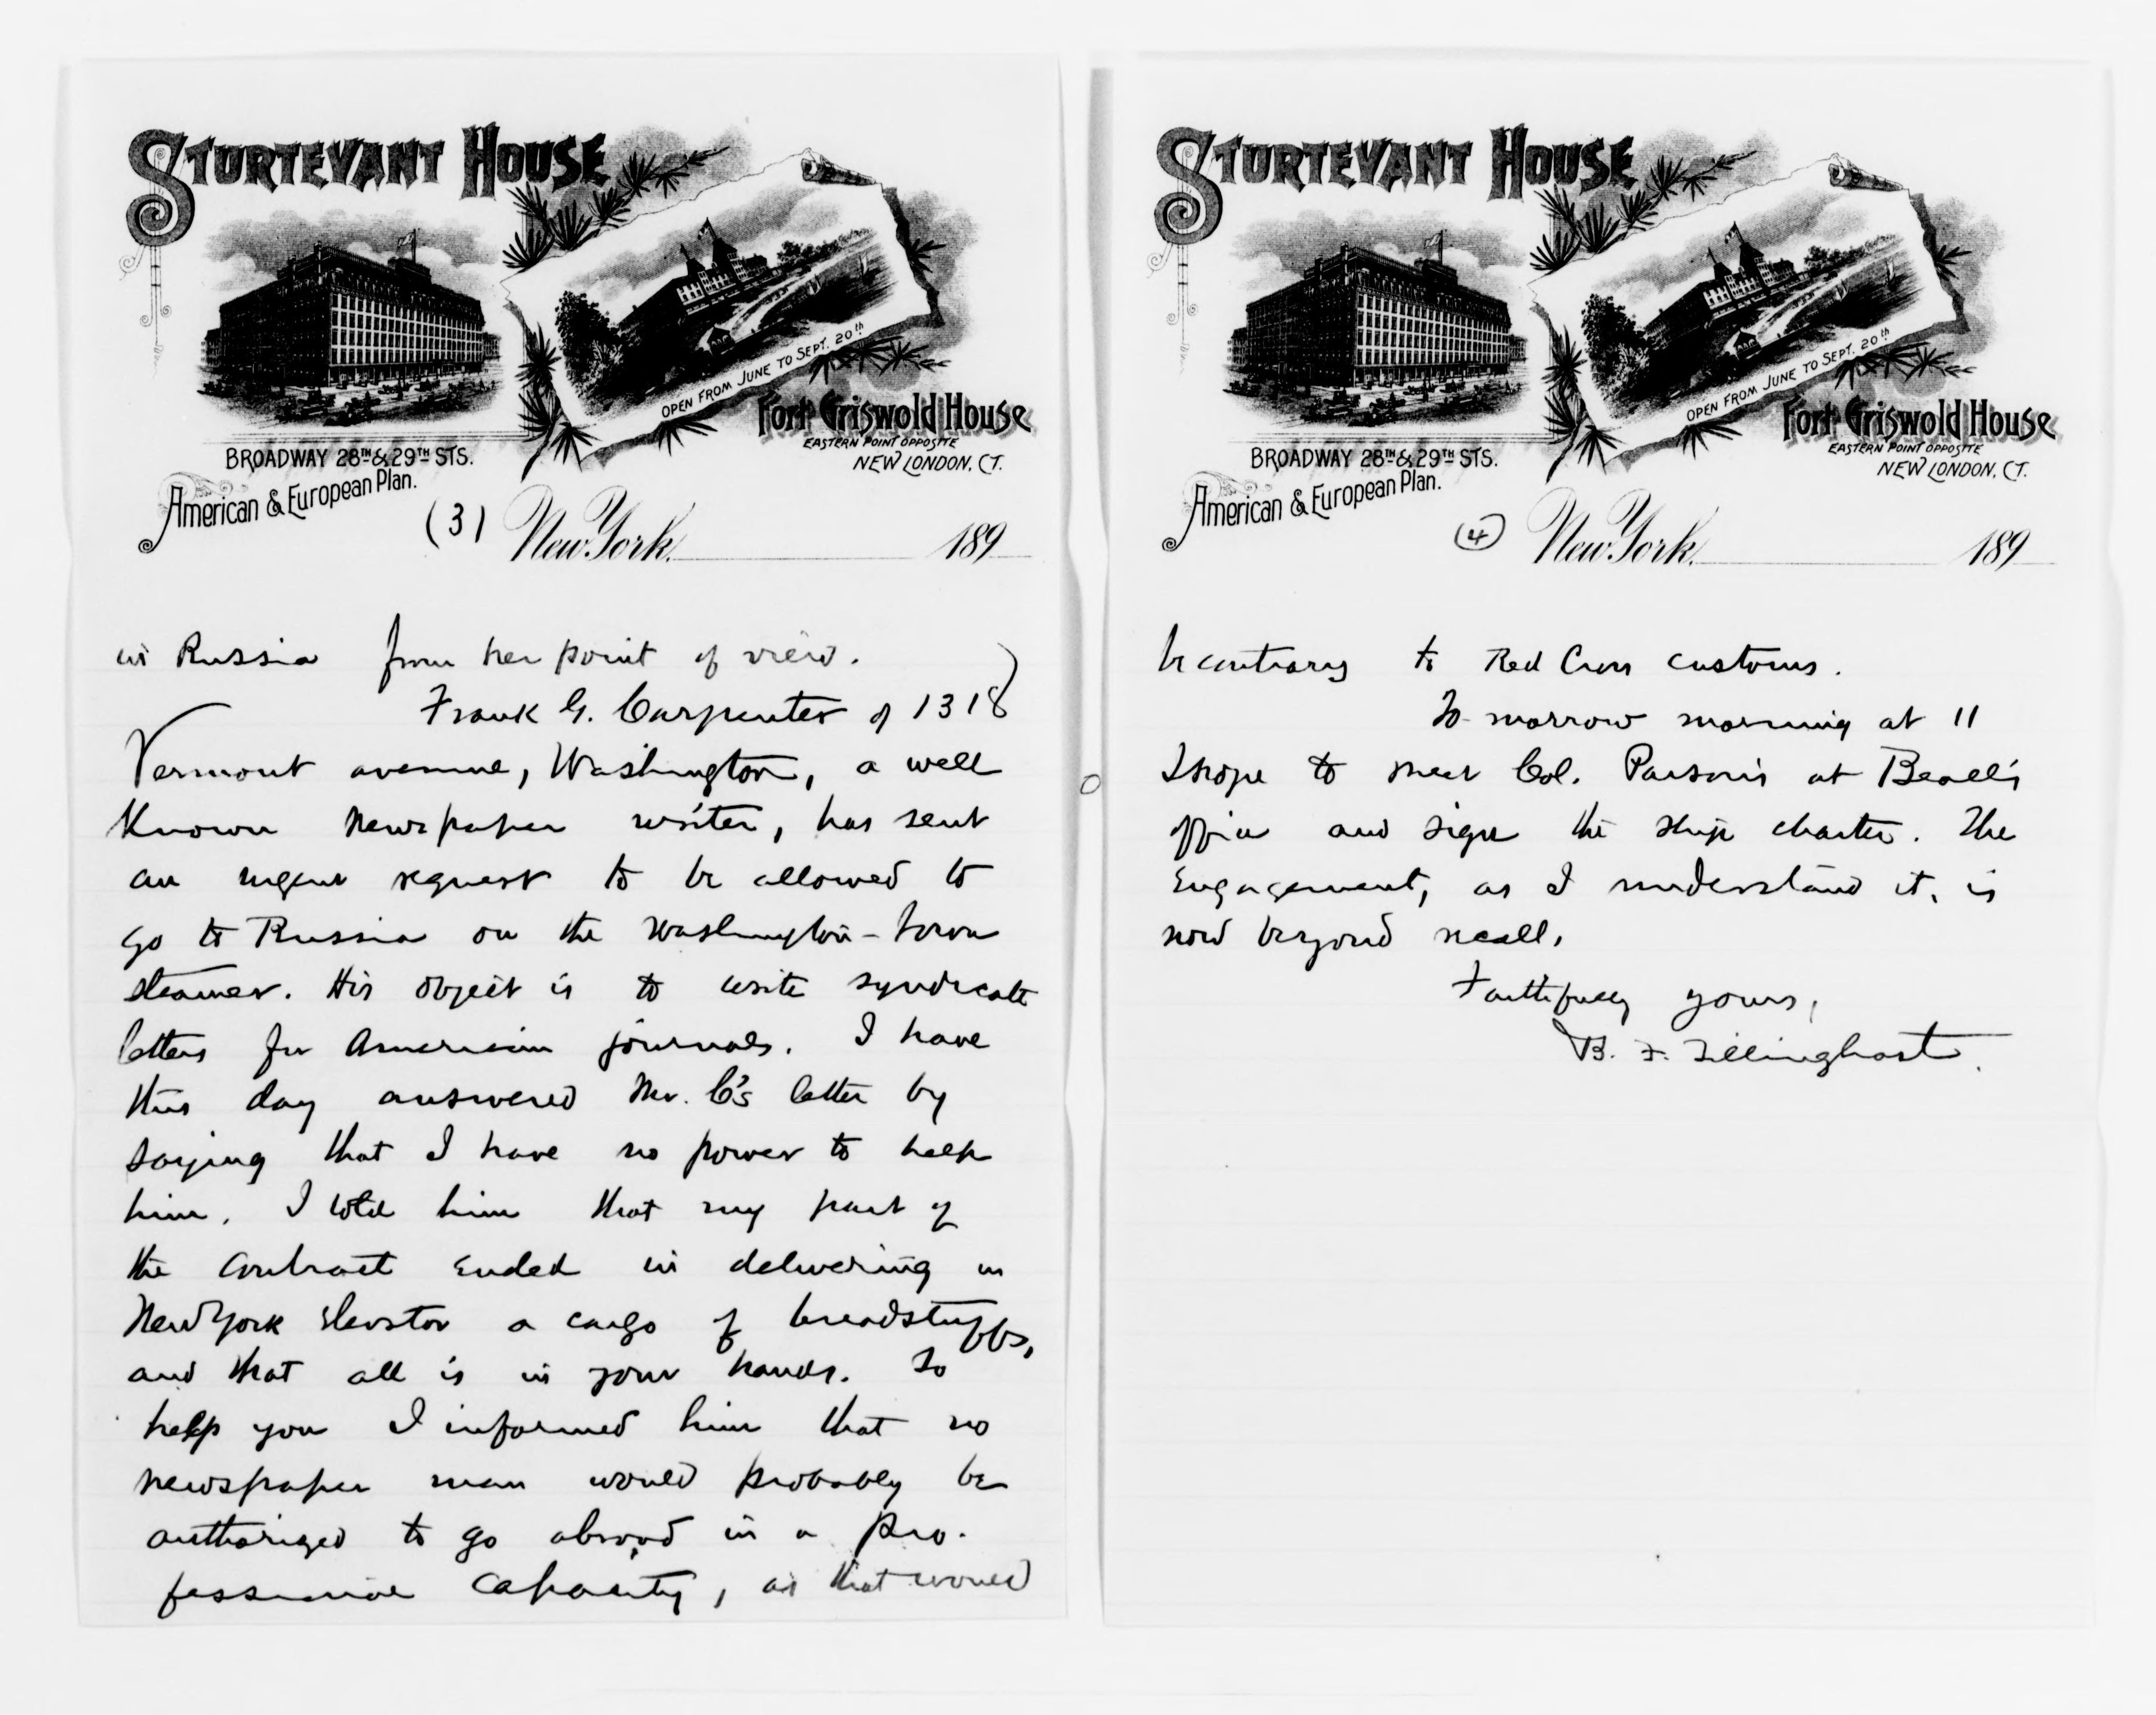 STURTEVANT HOUSE
OPEN FROM JUNE TO SEPT. 20th
Fort Griswold House
EASTERN POINT OPPOSITE
NEW LONDON, CT.
BROADWAY 28TH & 29TH STS.
American & European Plan.
(3) New York, 189
in Russia from her point of view.
Frank G. Carpenter of 1318
Vermont avenue, Washington, a well
known newspaper writer, has sent
an urgent request to be allowed to
go to Russia on the Washington-Iowa
steamer. His object is to write syndicate
letters for American journals. I have
this day answered Mr. C's letter by
saying that I have no power to help
him. I told him that my part of
the contract ended in delivering in
New York elevator a cargo of breadstuffs,
and that all is in your hands. To
help you I informed him that no
newspaper man would probably be
authorized to go abroad in a pro-
fessional capacity, as that would
STURTEVANT HOUSE
OPEN FROM JUNE TO SEPT. 20th
Fort Griswold House
EASTERN POINT OPPOSITE
NEW LONDON, CT.
BROADWAY 28TH & 29TH STS.
American & European Plan.
(4) New York, 189
be contrary to Red Cross customs.
To-morrow morning at 11
I hope to meet Col. Parsons at Beall's
office and sign the ship charter. The
engagement, as I understand it, is
now beyond recall.
Faithfully yours,
B. F. Tillinghast.